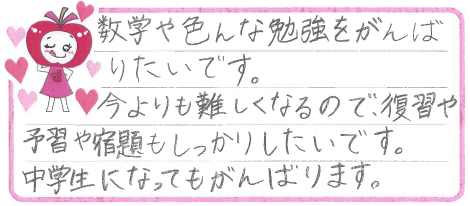 数学や色んな勉強をがんば
りたいです。
今よりも難しくなるので、復習や
予習や宿題もしっかりしたいです。
中学生になってもがんばります。